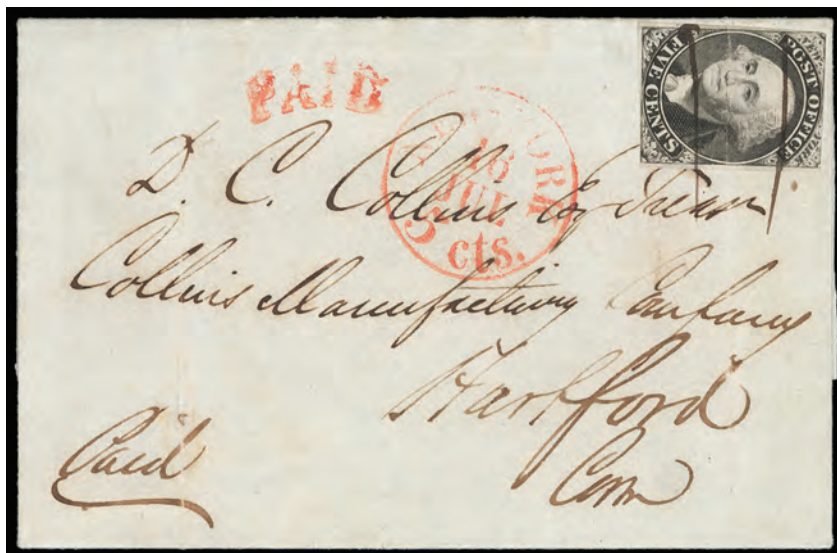 PAID
NEW YORK
16
JUL
5
cts.
POST OFFICE
FIVE CENTS
NEW YORK
D. C. Collins Esq Treasr
Collins Manufacturing Company
Hartford
Conn
Paid